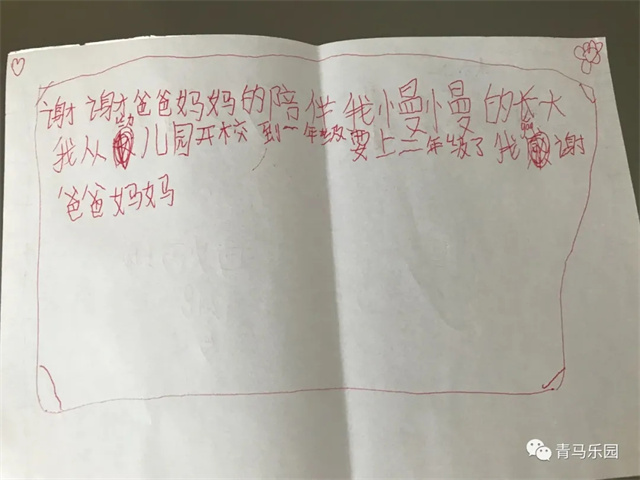 谢谢爸爸妈妈的陪伴我慢慢的长大
我从幼儿园开校到一年级要上二年级了我感谢
爸爸妈妈
青马乐园